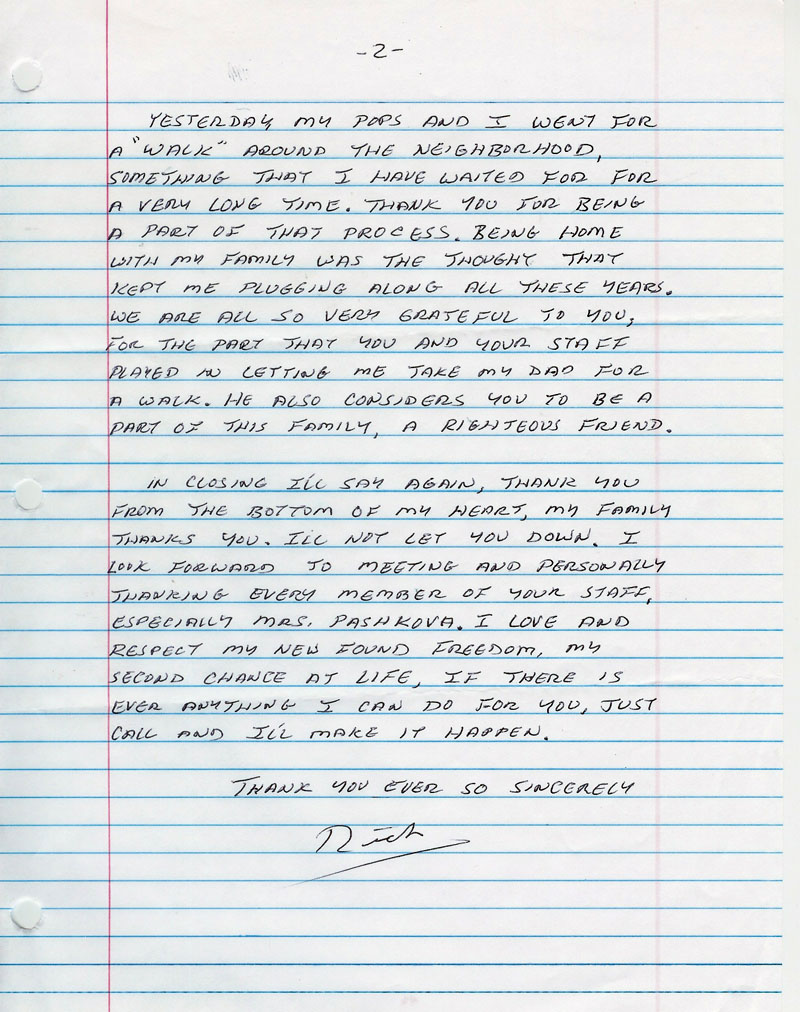 -2-
YESTERDAY MY POPS AND I WENT FOR
A "WALK" AROUND THE NEIGHBORHOOD,
SOMETHING THAT I HAVE WAITED FOR FOR
A VERY LONG TIME. THANK YOU FOR BEING
A PART OF THAT PROCESS. BEING HOME
WITH MY FAMILY WAS THE THOUGHT THAT
KEPT ME PLUGGING ALONG ALL THESE YEARS.
WE ARE ALL SO VERY GRATEFUL TO YOU,
FOR THE PART THAT YOU AND YOUR STAFF
PLAYED IN LETTING ME TAKE MY DAD FOR
A WALK. HE ALSO CONSIDERS YOU TO BE A
PART OF THIS FAMILY, A RIGHTEOUS FRIEND.
IN CLOSING I'LL SAY AGAIN, THANK YOU
FROM THE BOTTOM OF MY HEART, MY FAMILY
THANKS YOU. I'LL NOT LET YOU DOWN. I
LOOK FORWARD TO MEETING AND PERSONALLY
THANKING EVERY MEMBER OF YOUR STAFF,
ESPECIALLY MRS. PASHKOVA. I LOVE AND
RESPECT MY NEW FOUND FREEDOM, MY
SECOND CHANCE AT LIFE, IF THERE IS
EVER ANYTHING I CAN DO FOR YOU, JUST
CALL AND I'LL MAKE IT HAPPEN.
THANK YOU EVER SO SINCERELY
Rich